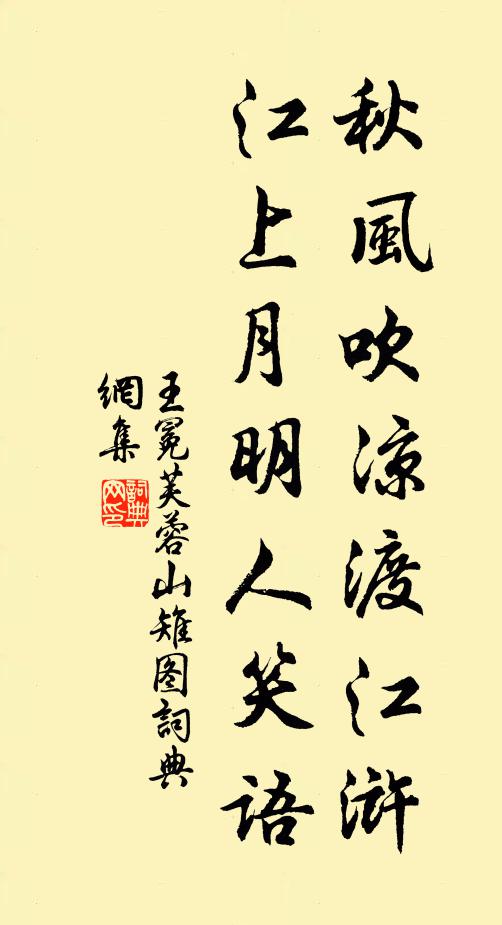 秋風吹凉渡江滸
江上月明人笑語
王冕芙蓉山雉图詞典
網集
詞典
网印